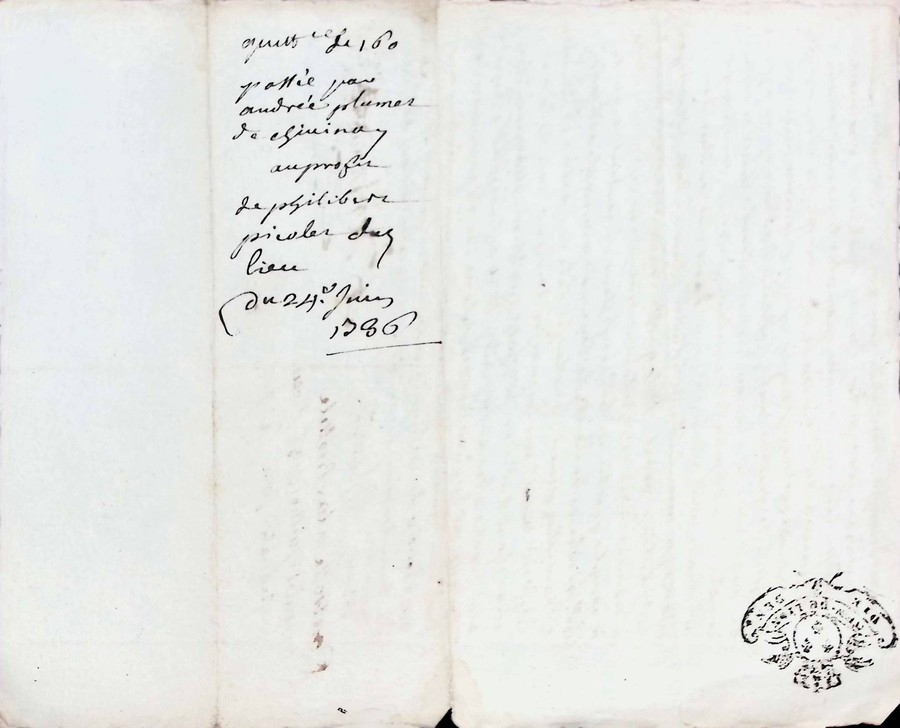 quitt ce de 160
passée par
andrée plumet
de chivinay
au profit
de philibert
picolet dud
lieu
du 24e Juin
1786